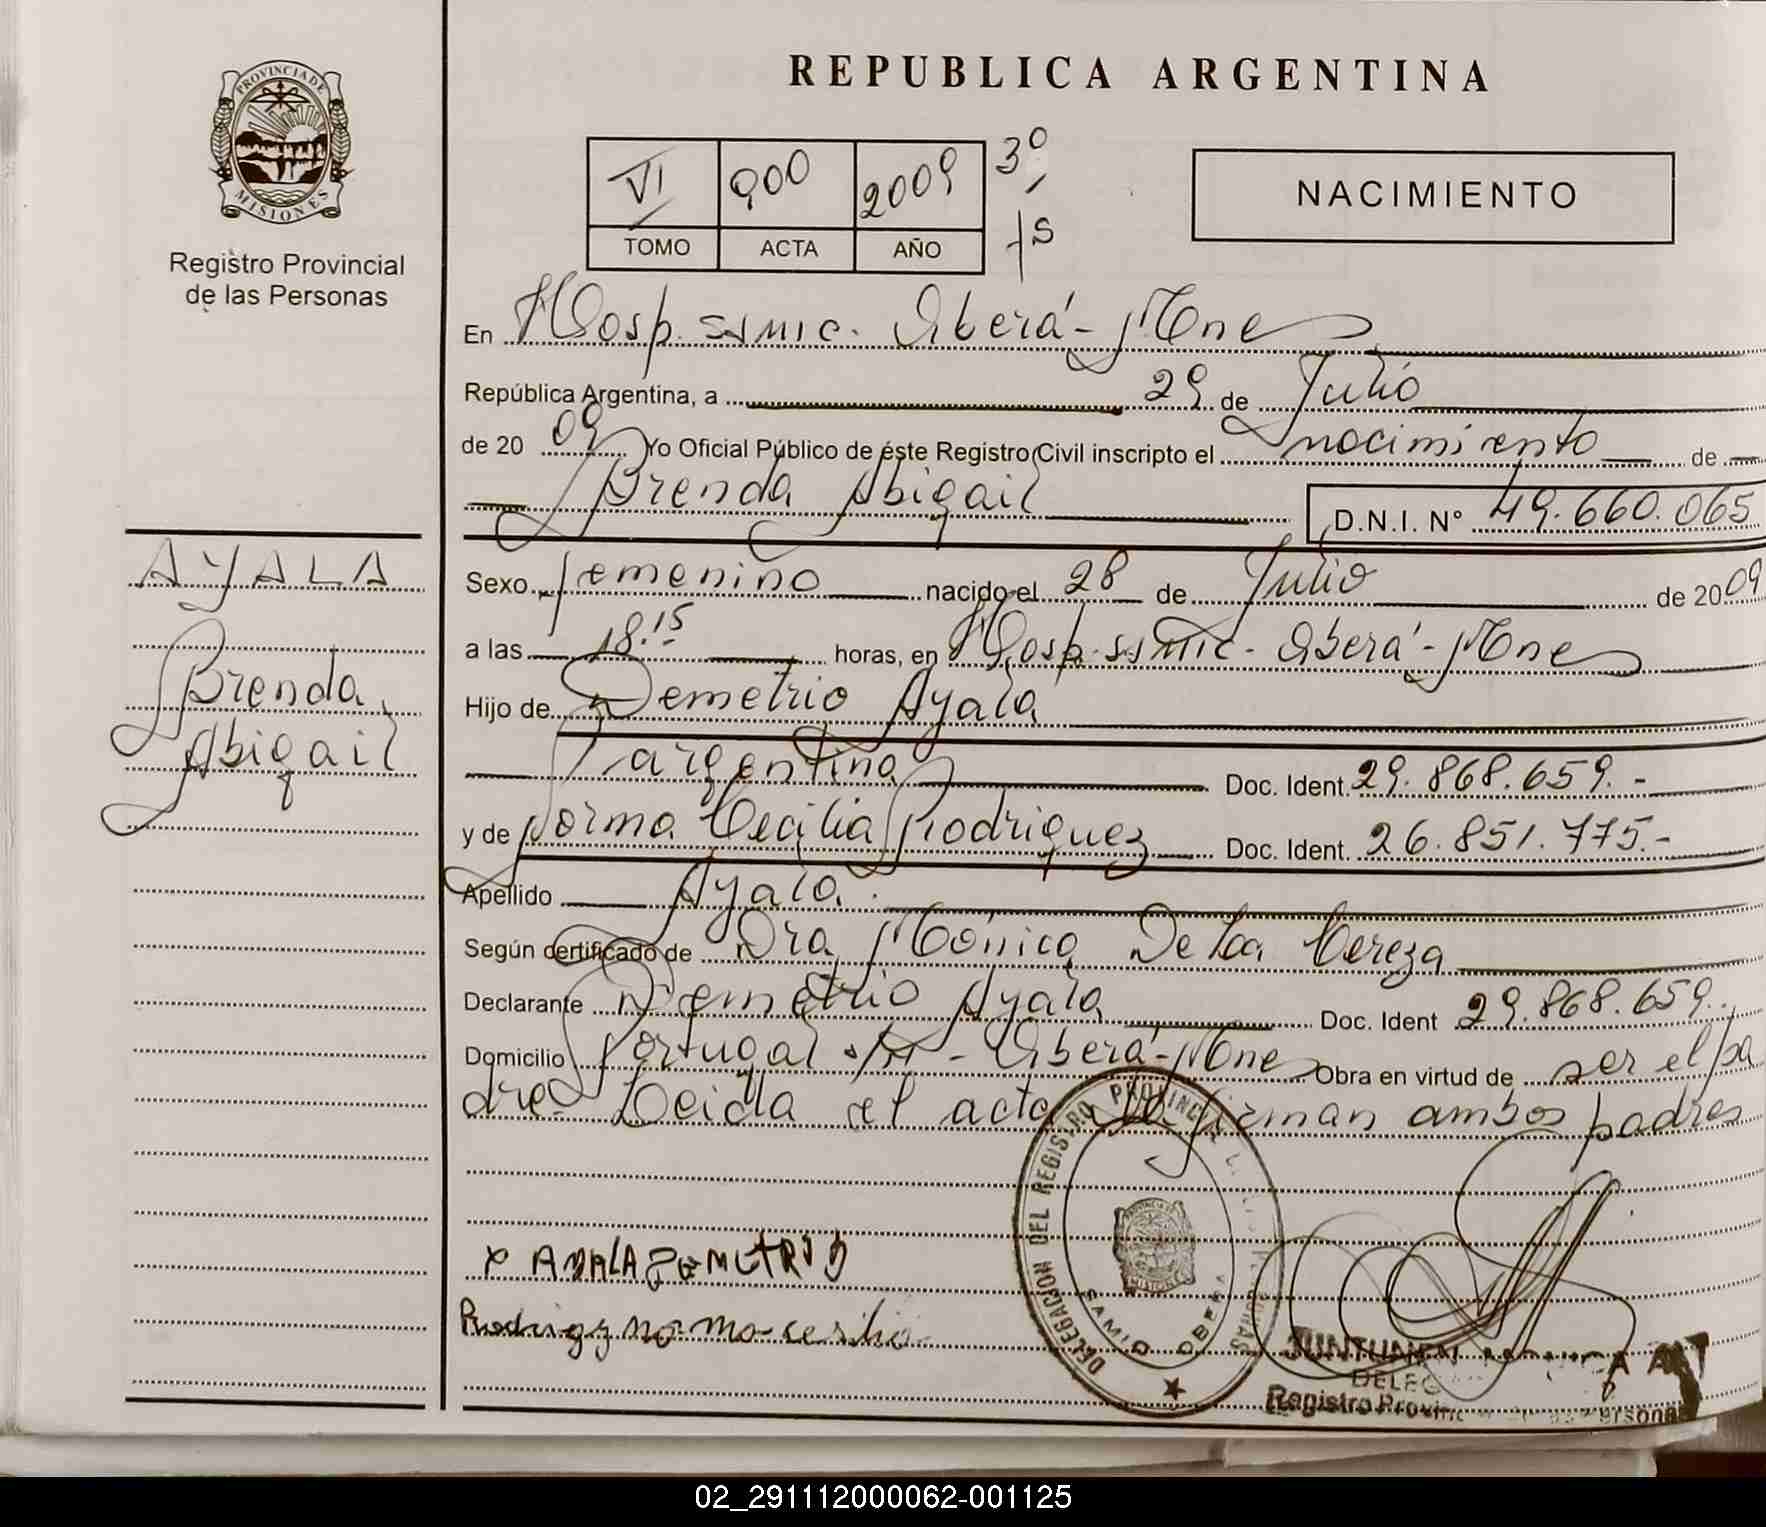 PROVINCIA DE
MISIONES
Registro Provincial
de las Personas
AYALA
Brenda
Abigail
REPUBLICA ARGENTINA
VI 900 2009 3º
TOMO ACTA AÑO
NACIMIENTO
En Hosp. SSMIC. Oberá - Mnes
República Argentina, a 29 de Julio
de 20 09 Yo Oficial Público de éste Registro Civil inscripto el nacimiento de
Brenda Abigail D.N.I. N° 49.660.065
Sexo femenino nacido el 28 de Julio de 2009
a las 18.15 horas, en Hosp. SSMIC - Oberá - Mnes
Hijo de Demetrio Ayala
argentino Doc. Ident. 29.868.659.-
y de Norma Cecilia Rodriguez Doc. Ident. 26.851.775.-
Apellido Ayala.
Según certificado de Dra Mónica De La Cereza
Declarante Demetrio Ayala Doc. Ident 29.868.659.
Domicilio Portugal S/N - Oberá - Mnes Obra en virtud de ser el pa
dre. Leida el acta la firman ambos padres
x AYALA DEMETRIO
DELEGACION DEL REGISTRO PROVINCIAL
SAMIC OBERA
JUNTUNEN
DELEG
Registro Provinc Personas
02_291112000062-001125